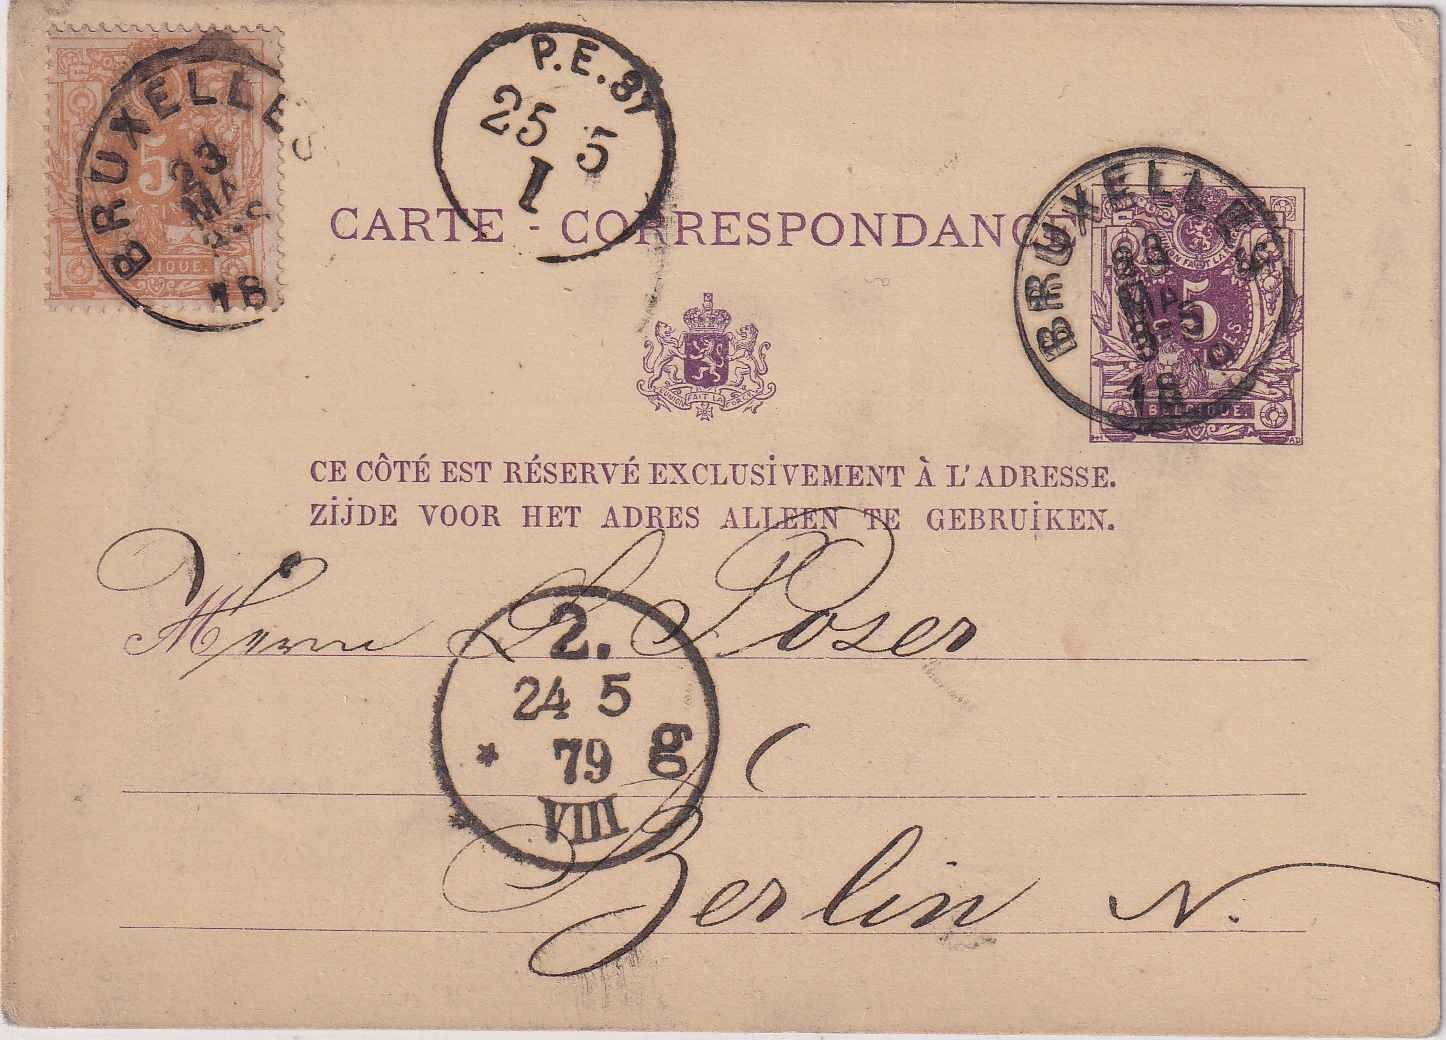 BRUXELLES
23
MA
18
5
BELGIQUE.
P.E. 37
25 5
I
CARTE - CORRESPONDANCE
BRUXELLES
MAI
18
5
BELGIQUE.
L'UNION FAIT LA FORCE
CE CÔTÉ EST RÉSERVÉ EXCLUSIVEMENT À L'ADRESSE.
ZIJDE VOOR HET ADRES ALLEEN TE GEBRUIKEN.
Herrn L Poser
2.
24 5
79
* g
VIII
Berlin N.